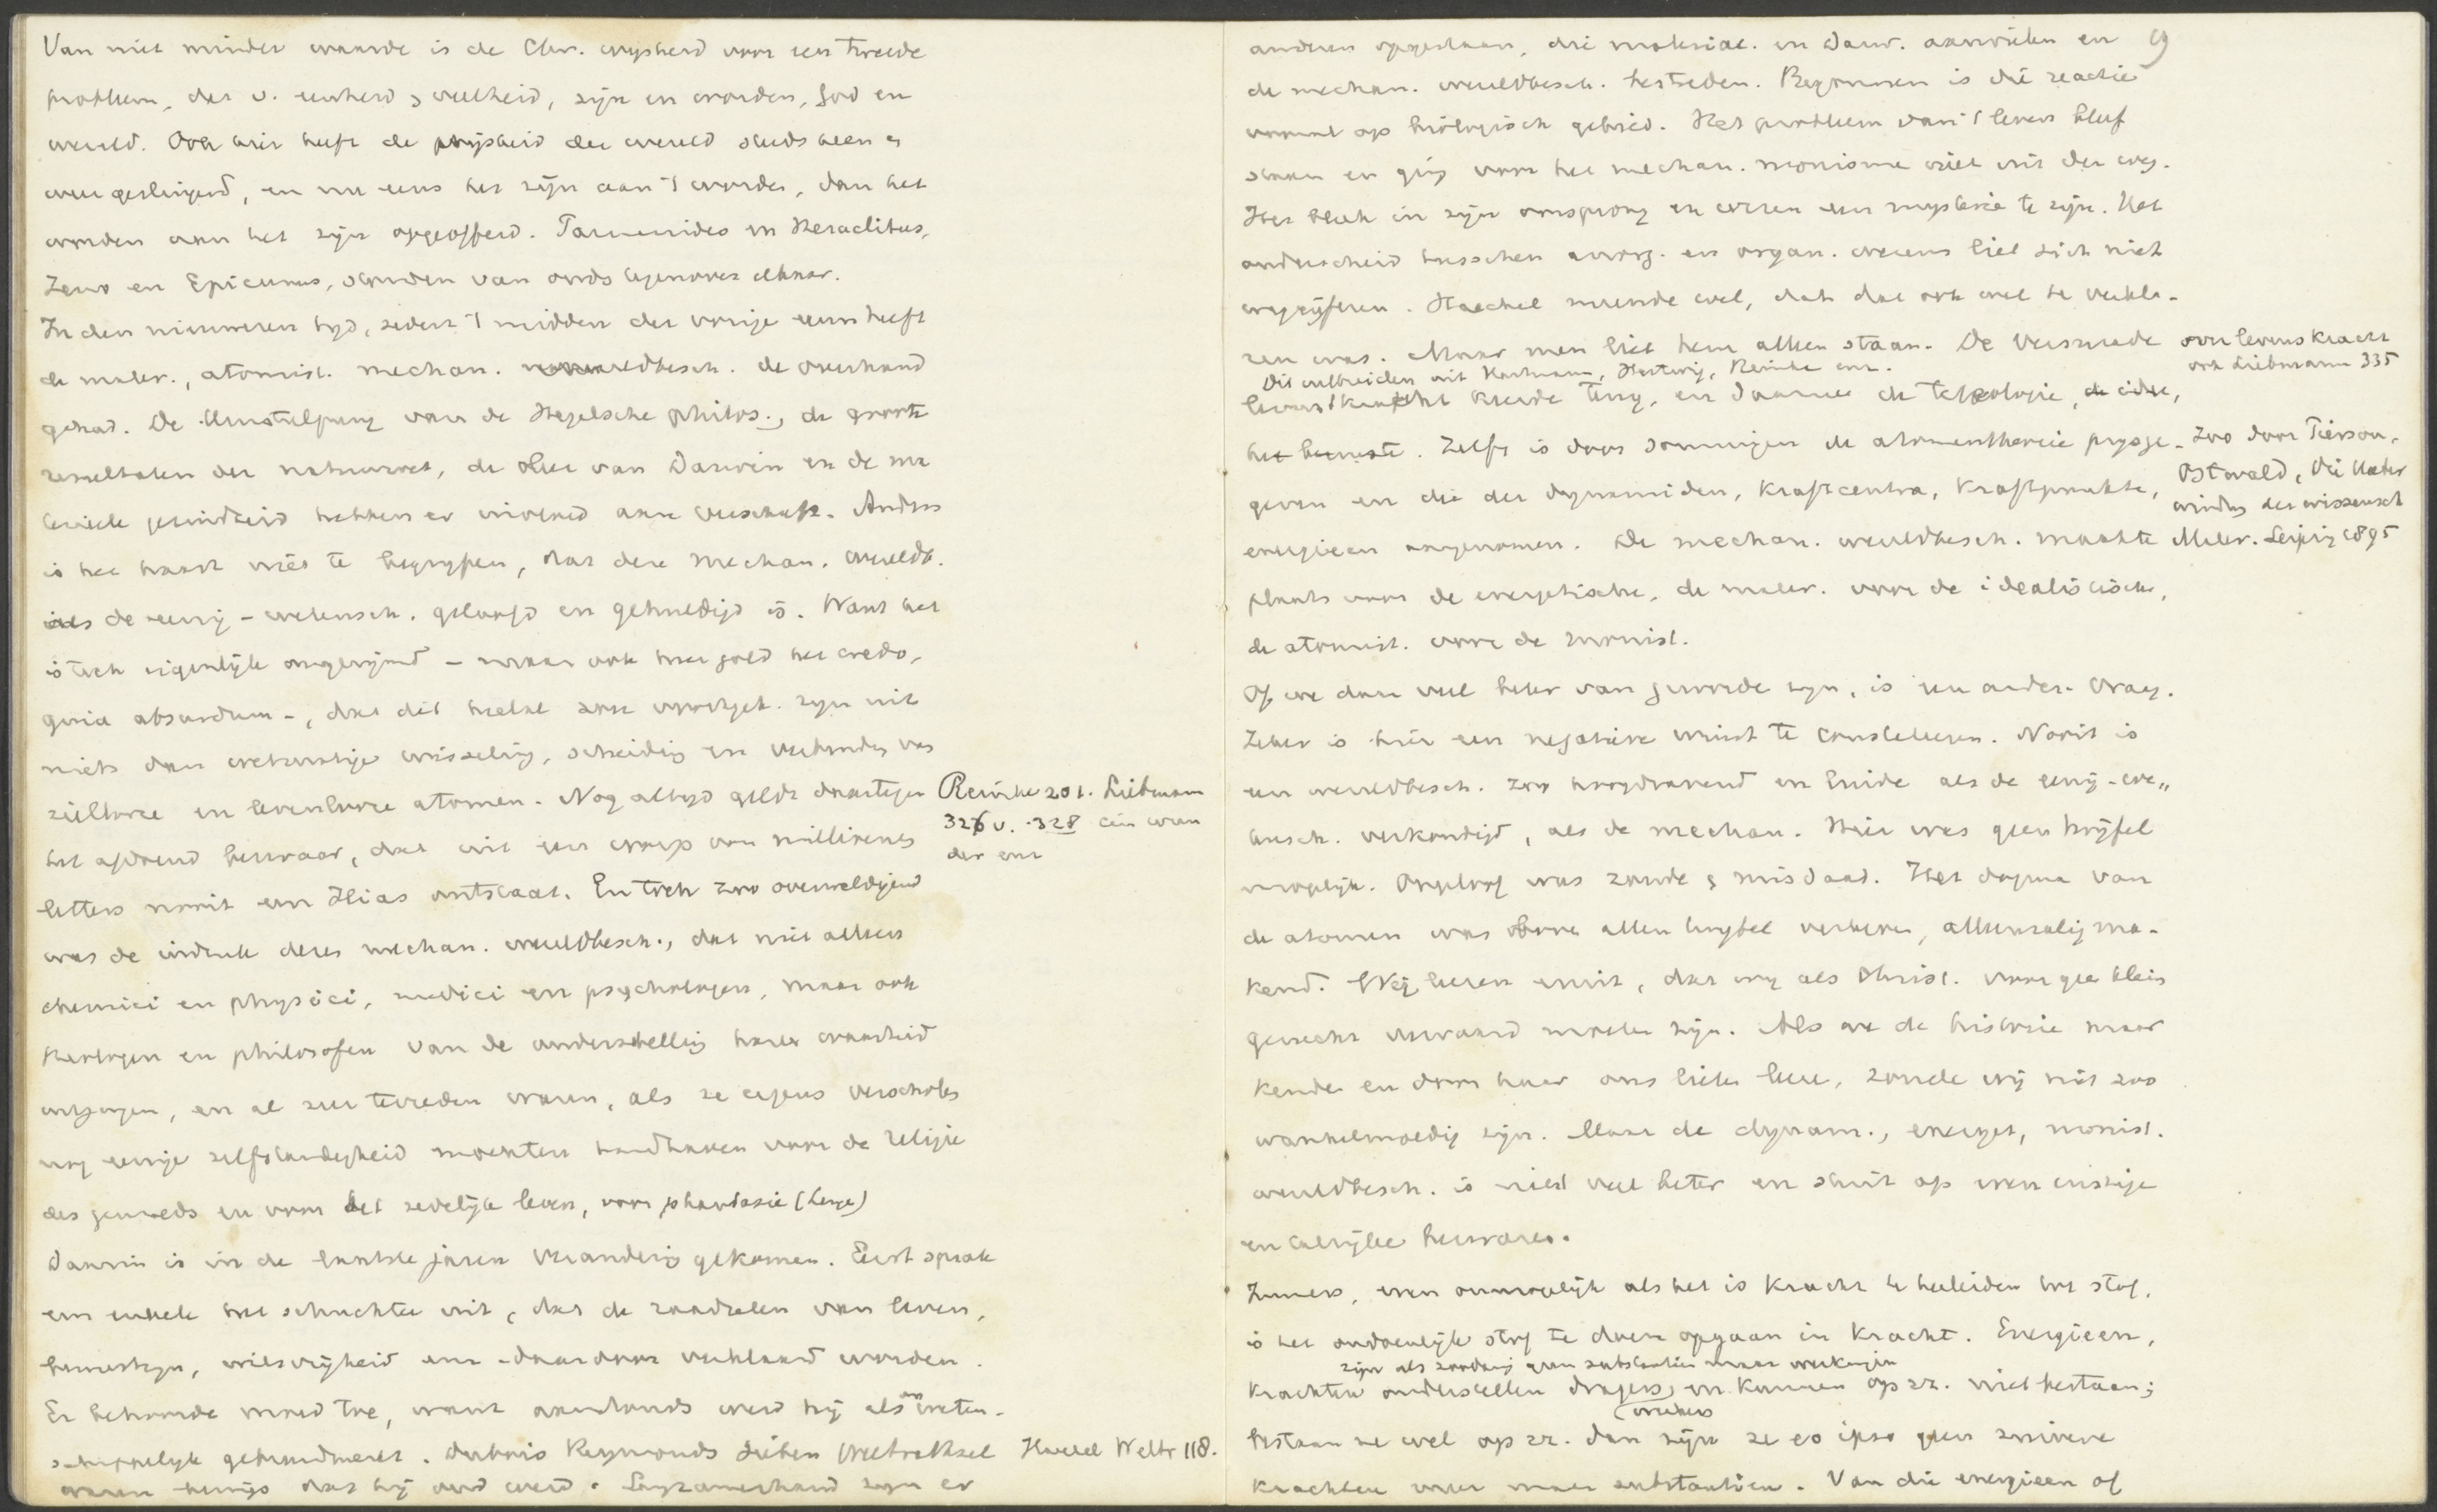 Van niet minder waarde is de Chr. wysheid voor een tweede
probleem, der v. eenheid & veelheid, zijn en worden, God en
wereld. Ook hier heeft de wijsheid der wereld steeds heen &
weer geslingerd, en nu eens het zijn aan 't worden, dan het
worden aan het zijn opgeofferd. Parmenides en Heraclitus,
Zeno en Epicurus, stonden van ouds tegenover elkaar.
In den nieuweren tyd, sedert 't midden der vorige eeuw heeft
de mater., atomist. mechan. wereldbesch. de overhand
gehad. De Umstülpung van de Hegelsche philos., de groote
resultaten der natuurwet, de leer van Darwin en de ma
terieele gezindheid hebben er invloed aan verschaft. Anders
is het haast niet te begrypen, dat deze mechan. wereldb.
als de eenig-wetensch. geloofd en gehuldigd is. Want het
is toch eigenlijk ongerijmd - maar ook hier gold het credo,
quia absurdum -, dat dit heelal zou voortgek. zyn uit
niets dan wetmatige wisseling, scheiding en verbinding van
ziellooze en levenlooze atomen. Nog altyd geldt daartegen
Reinke 201. Liebmann
326 v. 328 ein wun
der enz
het afdoend bewaar, dat uit een worp van millioenen
letters nooit een Ilias ontstaat. En toch zoo overweldigend
was de indruk dezer mechan. wereldbesch., dat niet alleen
chemici en physici, medici en psychologen, maar ook
theologen en philosofen van de onderstelling harer waarheid
uitgingen, en al zeer tevreden waren, als ze ergens verscholen
nog eenige zelfstandigheid mochten handhaven voor de religie
des gemoeds en voor het zedelijk leven, voor phantasie (Lange)
Daarin is in de laatste jaren verandering gekomen. Eerst sprak
een enkele het schuchter uit, dat de raadselen van leven,
bewustzyn, wilsvrijheid enz - daardoor verklaard worden.
Er behoorde moed toe, want aanstonds werd hij als onweten-
schappelyk gebrandmerkt. Dubois Reymonds sieben Welträthsel
Haeckel Weltr 118.
waren bewijs dat hij oud werd. Langzamerhand zyn er
anderen opgestaan, die material. en Darw. aanvielen en
9
de mechan. wereldbesch. bestreden. Begonnen is die reactie
vooral op biologisch gebied. Het probleem van 't leven bleef
staan en ging voor het mechan. monisme niet uit den weg.
Het bleek in zijn oorsprong en wezen een mysterie te zijn. Het
onderscheid tusschen anorg. en organ. wezens liet zich niet
wegcijferen. Haeckel meende wel, dat dat ook wel te verkla-
ren was. Maar men liet hem alleen staan. De versmade
over levenskracht
ook Liebmann 335
Dit uitbreiden uit Hartmann, Hertwig, Reinke enz.
levenskracht keerde terug, en daarmee de teleologie, de idee,
het bewuste. Zelfs is door sommigen de atomentheorie prysge-
Zoo door Pierson,
Ostwald, Die Ueber
windung des wissensch
Mater. Leipzig 1895
geven en die der dynamiden, Kraftcentra, Kraftpunkte,
energieen aangenomen. De mechan. wereldbesch. maakte
plaats voor de energetische, de mater. voor de idealistische,
de atomist. voor de monist.
Of we daar veel beter van geworden zyn, is een ander. vraag.
Zeker is hier een negatieve winst te constateeren. Nooit is
een wereldbesch. zoo hoogdravend en luide als de eenig-we„
tensch. verkondigd, als de mechan. Hier was geen twijfel
mogelijk. Ongeloof was zonde & misdaad. Het dogma van
de atomen was boven allen twyfel verheven, alleenzaligma-
kend. Wij leeren eruit, dat wy als Christ. voor geen klein
gerucht vervaard moeten zijn. Als we de historie maar
kenden en door haar ons lieten leeren, zouden wij niet zoo
wankelmoedig zijn. Maar de dynam., energet, monist.
wereldbesch. is niet veel beter en stuit op even ernstige
en talrijke bezwaren.
Immers, even onmogelijk als het is kracht te herleiden tot stof,
is het ondoenlijk stof te doen opgaan in kracht. Energieen,
zijn als zoodanig geen substantien maar werkingen
krachten onderstellen dragers, en kunnen op zz. niet bestaan;
werkers
bestaan ze wel op zz. dan zijn ze eo ipso geen zuivere
krachten meer maar substantien. Van die energieen of